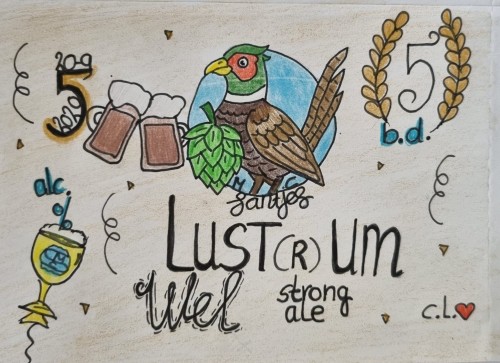 5
b.d.
alc.
%
santjes
LUST(R)UM
Wel
strong
ale
c.l.